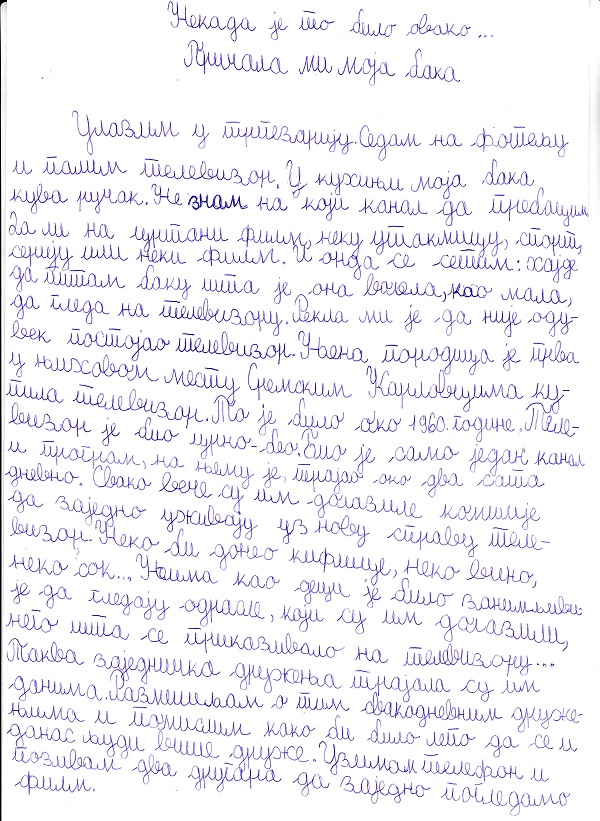 Некада је то било овако...
Причала ми моја бака
Улазим у трпезарију. Седам на фотељу
и палим телевизор. У кухињи моја бака
кува ручак. Не знам на који канал да пребацим.
Да ли на цртани филм, неку утакмицу, спорт,
серију или неки филм. И онда се сетим: хајде
да питам баку шта је она волела, као мала,
да гледа на телевизору. Рекла ми је да није оду-
век постојао телевизор. Њена породица је прва
у њиховом месту Сремским Карловцима ку-
пила телевизор. То је било око 1960. године. Теле-
визор је био црно-бео. Био је само један канал
и програм, на њему је, трајао око два сата
дневно. Свако вече су им долазиле комшије
да заједно уживају уз нову справу теле-
визор. Неко би донео кифлице, неко вино,
неко сок... Њима као деци је било занимљивије
је да гледају одрасле, који су им долазили,
него шта се приказивало на телевизору...
Таква заједничка дружења трајала су им
данима. Размишљам о тим свакодневним друже-
њима и помислим како би било лепо да се и
данас људи више друже. Узимам телефон и
позивам два другара да заједно погледамо
филм.